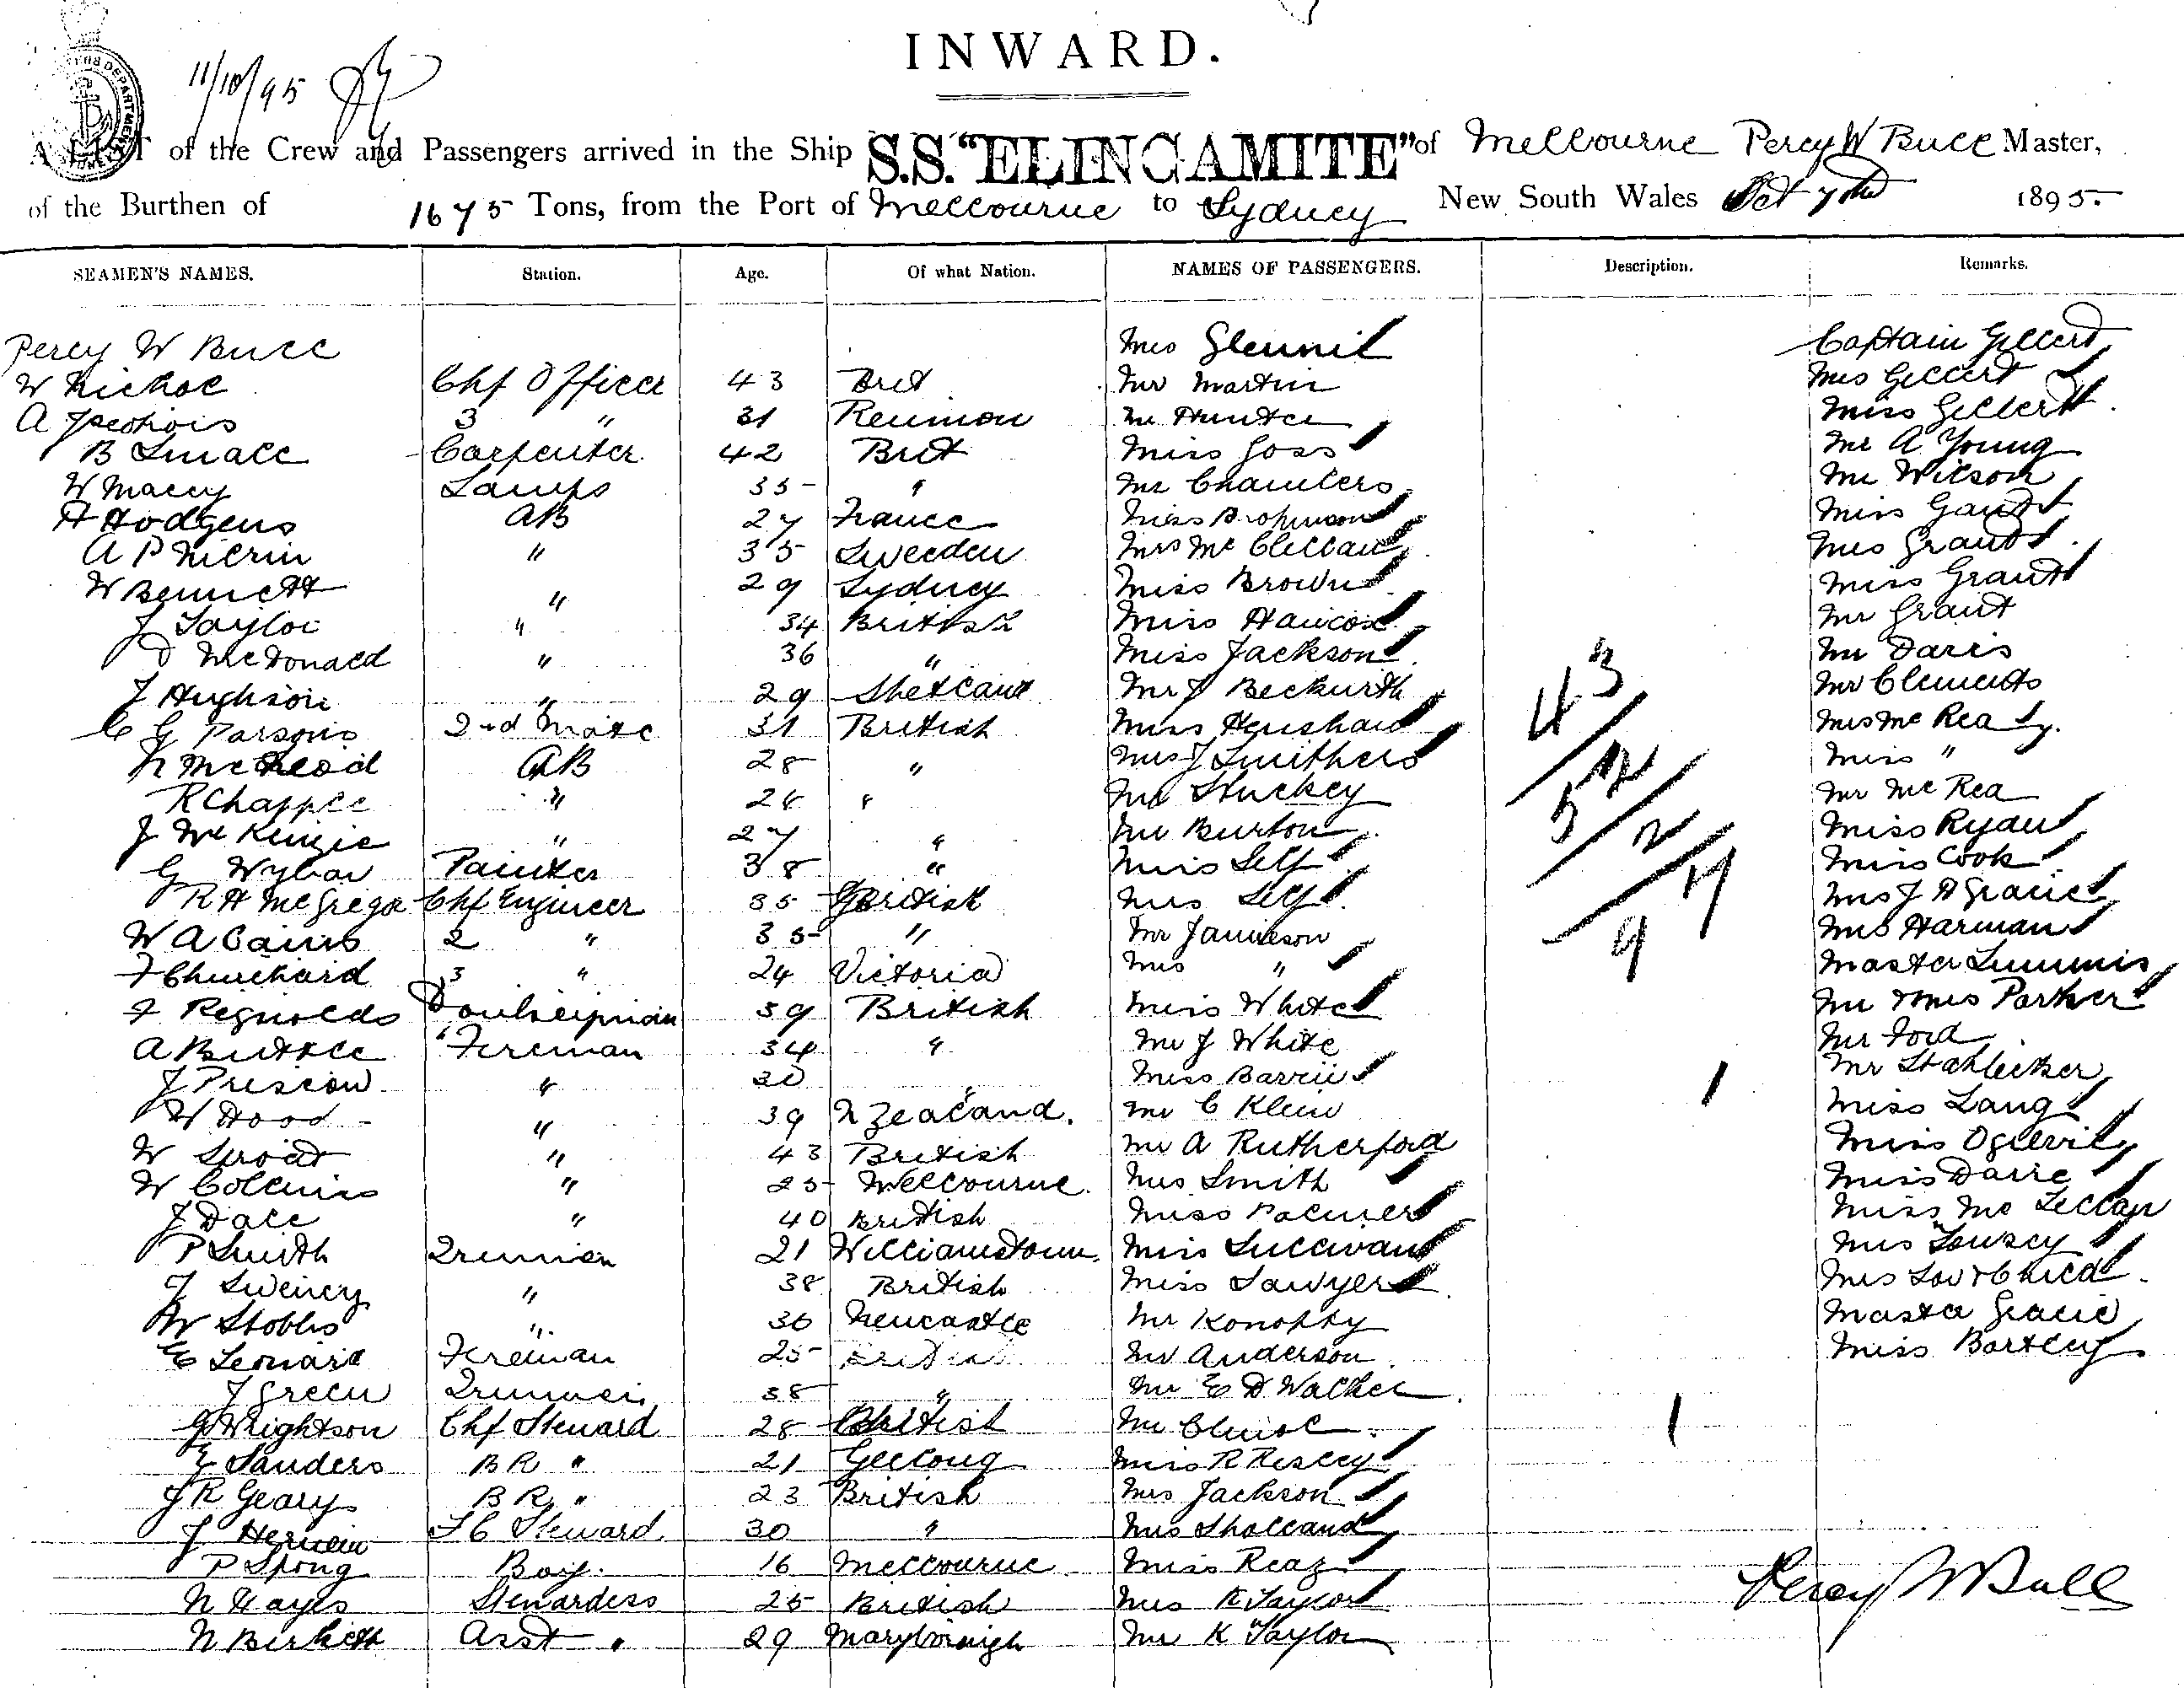 INWARD.
11/10/95
A LIST of the Crew and Passengers arrived in the Ship S.S. "ELINGAMITE" of Melbourne Percy W Bull Master,
of the Burthen of 1675 Tons, from the Port of Melbourne to Sydney New South Wales Oct 7th 1895.
SEAMEN'S NAMES. Station. Age. Of what Nation. NAMES OF PASSENGERS. Description. Remarks.
Percy W Bull Mrs Captain Gilbert
W Nichol Chf Officer 43 Brit Mr Martin Mrs Gilbert
A 3 " 31 Reunion Mr Hunter Miss Gilbert
B Small Carpenter 42 Brit Miss Goss Mr A Young
W Macey Lamps 35 " Mr Chambers Mr Wilson
H Hodgens AB 27 France Miss Miss
A P Nilrin " 35 Sweeden Mrs McClellan Mrs Grant
W Bennett " 29 Sydney Miss Brown Miss Grant
J Taylor " 34 British Miss Hancox Mr Grant
D McDonald " 36 " Miss Jackson Mr Davis
J Hughson " 29 Shetland Mr J Beckurth Mr Clements
C G Parsons 2nd Mate 31 British Miss Henshaw Mrs McRea
N McLeod AB 28 " Mrs J Smithers Miss "
R Chapple " 24 " Mr Stuckey Mr McRea
J McKenzie " 27 " Mr Burton Miss Ryan
G Wylar Painter 38 " Miss Self Miss Cook
R H McGregor Chf Engineer 35 British Mrs Self Mrs J H Gracie
W A Cairns 2 " 35 " Mr Jamieson Mrs Harman
F Churchard 3 " 24 Victoria Mrs " Master Lummis
F Reynolds 39 British Miss White Mr & Mrs Parker
A Buttle Fireman 34 " Mr J White Mr Ford
J Prescow " 30 " Miss Barrie Mr Stahlecker
W Hood " 39 N Zealand. Mr C Klein Miss Lang
W Sproat " 43 British Mr A Rutherford Miss Ogilvily
W Collins " 25 Melbourne. Mrs Smith Miss Darre
J Dale " 40 British Miss Palmer Miss McLellan
P Smith Trimmer 21 Williamstown. Miss Sullivan Mrs Lousey
J Sweeney " 38 British Miss Sawyer Mrs Low & Child
W Stobbs " 30 Newcastle Mr Konophy Master Gracie
E Leonard Fireman 25 British Mr Anderson Miss Bartley
J Green Trimmer 38 " Mr E D Walker
J Wrightson Chf Steward 28 British Mr
E Sanders B R " 21 Geelong Miss R Risley
J R Geary B R " 23 British Mrs Jackson
J Herwein F C Steward 30 " Mrs Sholland
P Spong Boy. 16 Melbourne Miss Reaz
N Hayes Stewardess 25 British Mrs K Taylor
N Birkett Asst " 29 Maryborough Mr K Taylor
43
52
2
9
Percy W Bull